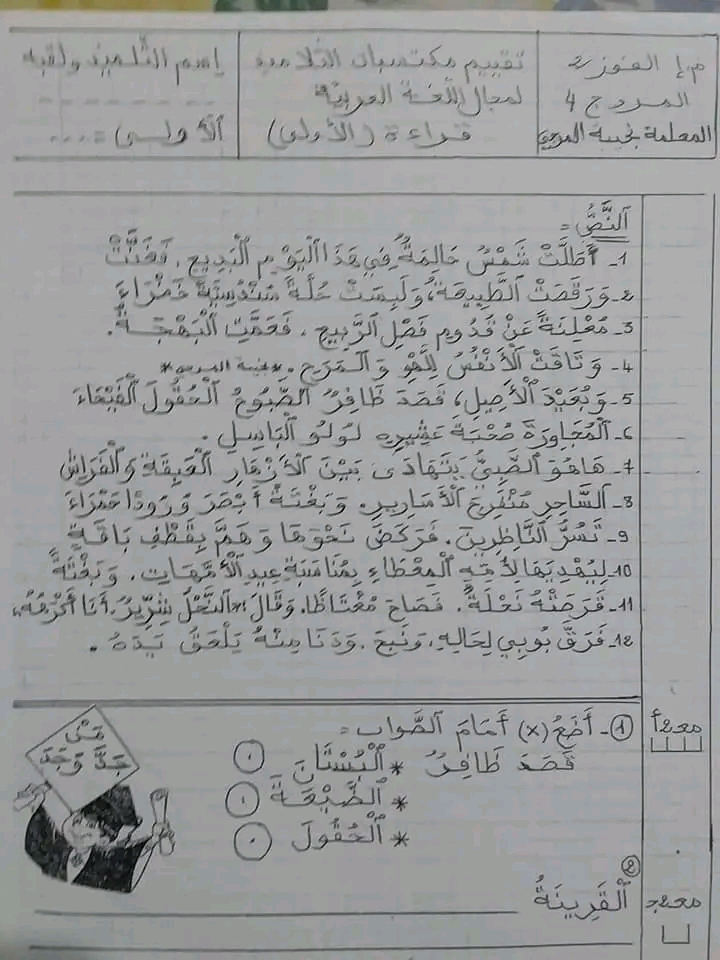 م.إ الفوز 2
المروج 4
المعلمة نجيبة المرجي
تقييم مكتسبات التلاميذ
لمجال اللغة العربية
قراءة (الأولى)
إسم التلميذ ولقبه
الأولى = ....
اَلنَّصُّ =
1- أَطَلَّتْ شَمْسٌ حَالِمَةٌ فِي هَذَا الْيَوْمِ الْبَدِيعِ. فَغَنَّتْ
2- وَرَقَصَتْ اَلطَّبِيعَةُ، وَلَبِسَتْ حُلَّةً سُنْدُسِيَّةً خَضْرَاءَ
3- مُعْلِنَةً عَنْ قُدُومِ فَصْلِ الرَّبِيعِ. فَعَمَّتِ الْبَهْجَةُ.
4- وَتَاقَتْ الْأَنْفُسُ لِلَّهْوِ وَالْمَرَحِ. *نجيبة المرجي*
5- وَبُعَيْدَ الْأَصِيلِ، قَصَدَ ظَافِرٌ الصَّبُوحُ الْحُقُولَ الْفَيْحَاءَ
6- الْمُجَاوِرَةَ صُحْبَةَ عَشِيرِهِ لُولُو الْبَاسِلِ.
7- هَاهُوَ الصَّبِيُّ يَتَهَادَى بَيْنَ الْأَزْهَارِ الْعَبِقَةِ وَالْفَرَاشِ
8- السَّاحِرِ مُنْفَرِجَ الْأَسَارِيرِ. وَبَغْتَةً أَبْصَرَ وُرُودًا حَمْرَاءَ
9- تَسُرُّ النَّاظِرِينَ. فَرَكَضَ نَحْوَهَا وَهَمَّ بِقَطْفِ بَاقَةٍ
10- لِيُهْدِيَهَا لِأُمِّهِ الْمِعْطَاءِ بِمُنَاسَبَةِ عِيدِ الْأُمَّهَاتِ. وَبَغْتَةً
11- قَرَصَتْهُ نَحْلَةٌ. فَصَاحَ مُغْتَاظًا. وَقَالَ: "النَّحْلُ شِرِّيرٌ. أَنَا أَكْرَهُهُ"
12- فَرَقَّ بُوبِي لِحَالِهِ، وَنَبَحَ. وَدَنَا مِنْهُ يَلْعَقُ يَدَهُ.
1- أَضَعُ (x) أَمَامَ الصَّوَابِ =
قَصَدَ ظَافِرٌ * الْبُسْتَانَ
* الضَّيْعَةَ
* الْحُقُولَ
مع1أ
مَنْ
جَدَّ وَجَدَ
2
اَلْقَرِينَةُ